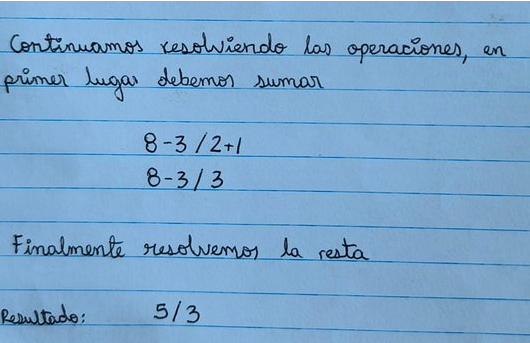 Continuamos resolviendo las operaciones, en
primer lugar debemos sumar
8-3/2+1
8-3/3
Finalmente resolvemos la resta
Resultado: 5/3